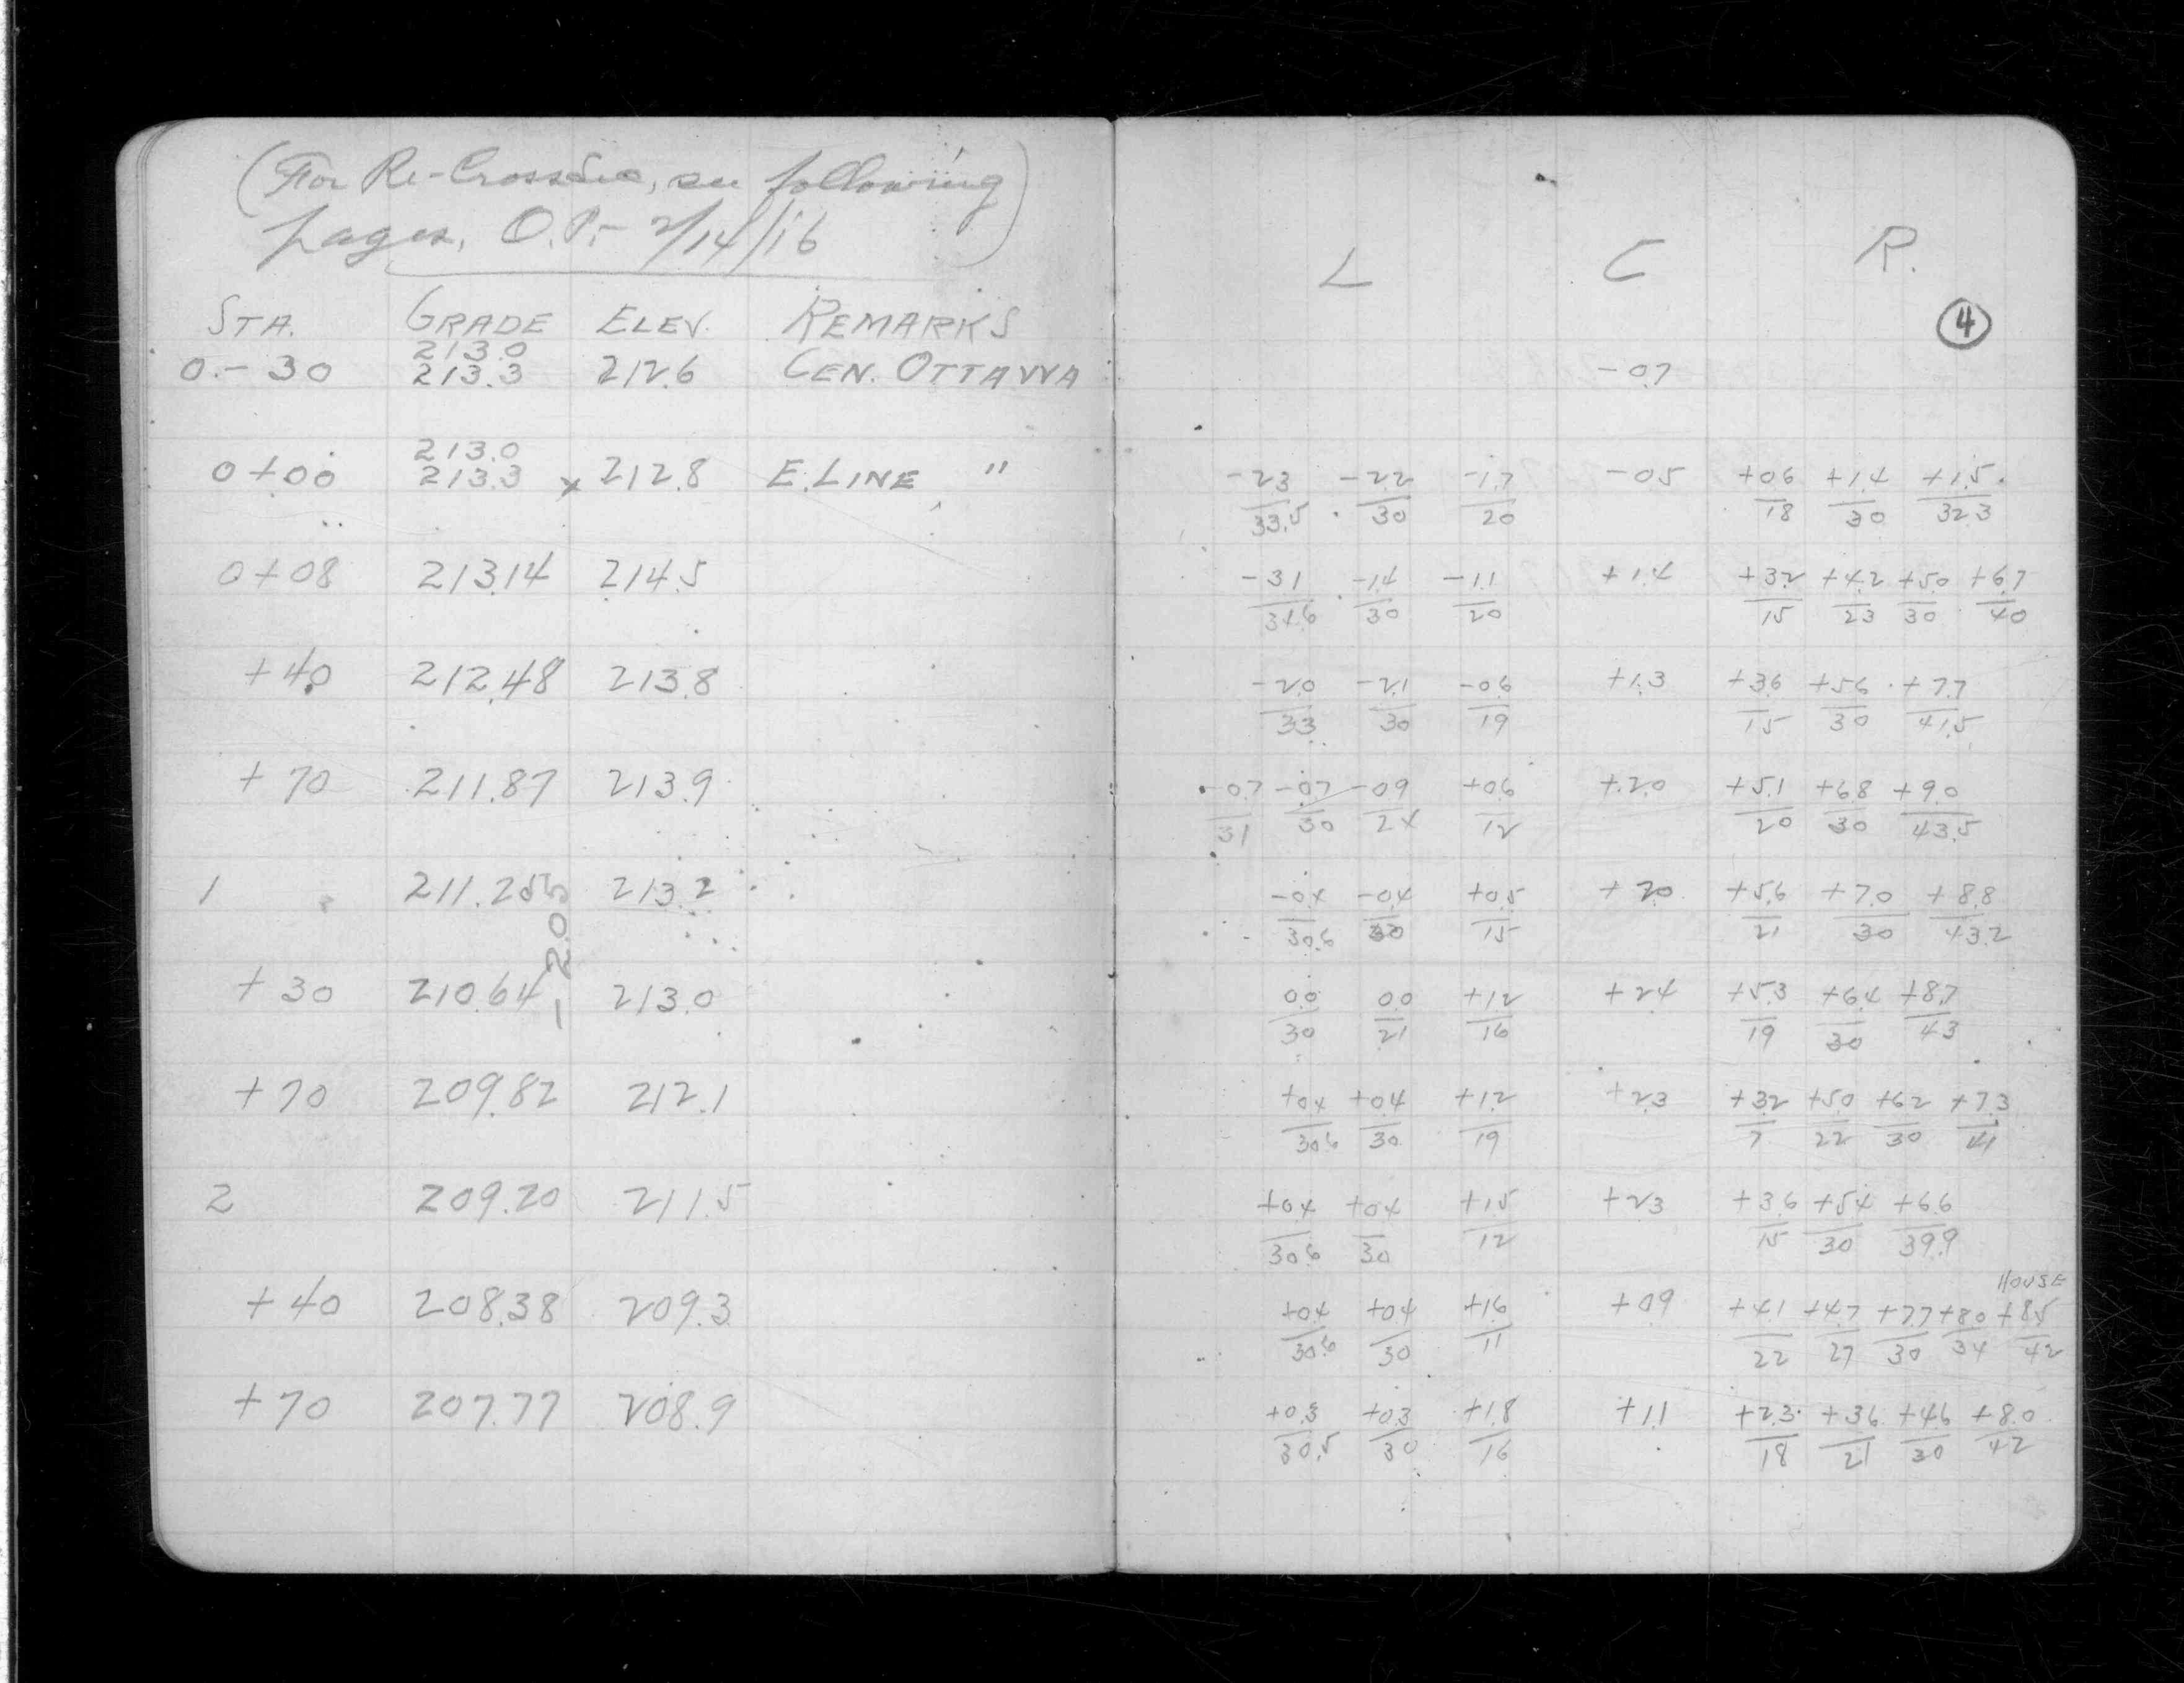 (For Re-CrossSec, see following
pages, O.P. - 2/14/16)
STA. GRADE ELEV. REMARKS
213.0
0.-30 213.3 212.6 CEN. OTTAWA
213.0
0+00 213.3 x 212.8 E. LINE "
0+08 213.14 214.5
+40 212.48 213.8
+70 211.87 213.9
1 211.255 213.2
-2.05
+30 210.64 213.0
+70 209.82 212.1
2 209.20 211.5
+40 208.38 209.3
+70 207.77 208.9
L C R.
4
-0.7
-2.3 -2.2 -1.7 -0.5 +0.6 +1.4 +1.5
33.5 30 20 18 30 32.3
-3.1 -1.4 -1.1 +1.4 +3.2 +4.2 +5.0 +6.7
34.6 30 20 15 23 30 40
-2.0 -2.1 -0.6 +1.3 +3.6 +5.6 +7.7
33 30 19 15 30 41.5
-0.7 -0.7 -0.9 +0.6 +2.0 +5.1 +6.8 +9.0
31 30 24 12 20 30 43.5
-0.4 -0.4 +0.5 +2.0 +5.6 +7.0 +8.8
30.6 30 15 21 30 43.2
0.0 0.0 +1.2 +2.4 +5.3 +6.4 +8.7
30 21 16 19 30 43
+0.4 +0.4 +1.2 +2.3 +3.2 +5.0 +6.2 +7.3
30.6 30 19 7 22 30 41
+0.4 +0.4 +1.5 +2.3 +3.6 +5.4 +6.6
30.6 30 12 15 30 39.9
HOUSE
+0.4 +0.4 +1.6 +0.9 +4.1 +4.7 +7.7 +8.0 +8.5
30.6 30 11 22 27 30 34 42
+0.3 +0.3 +1.8 +1.1 +2.3 +3.6 +4.6 +8.0
30.5 30 16 18 21 30 42